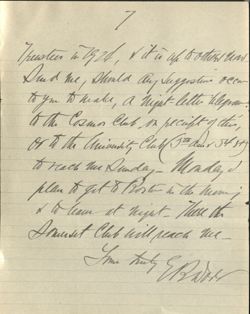 7
Trustees in 1926, & it is up to others now
Send me, should any suggestion occur
to you to make, a night letter telegram
to the Cosmos Club, on receipt of this,
or to the University Club (5th Ave
to reach me Sunday. Monday, I
plan to get to Boston in the morning
& to leave at night. There the
Somerset Club will reach me.
Yours truly